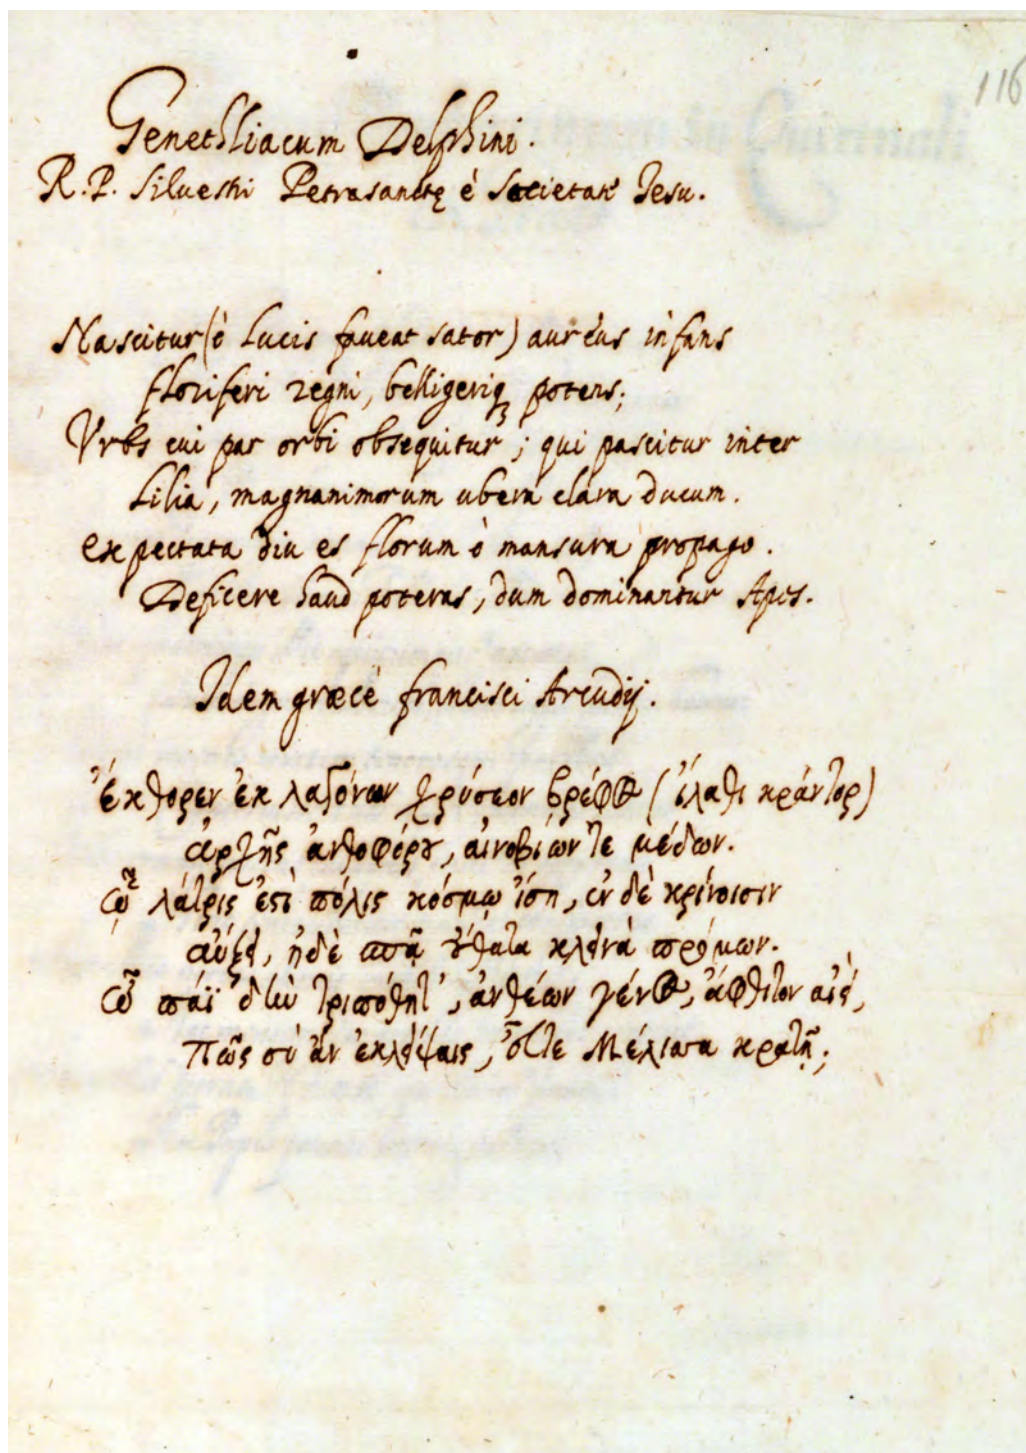 116
Genethliacum Delphini.
R. P. Siluestri Petrasanctę è Societate Iesu.
Nascitur (ò Lucis faueat sator) aureus infans
floriferi regni, belligeriqꝫ potens;
Vrbs cui par orbi obsequitur; qui pascitur inter
Lilia, magnanimorum ubera clara ducum.
Expectata diu es florum ò mansura propago.
Deficere haud poteras, dum dominantur Apes.
Idem græcè francisci Arcudij.
Ἔκθορεν ἐκ λαγόνων χρύσεον βρέφος (ἵλαθι κράντορ)
ἀρχῆς ἀνθοφόρου, αἰνοβιών τε μέδων.
ᾧ λάτρις ἐστὶ πόλις κόσμῳ ἴση, ἐν δὲ κρίνοισιν
αὔξει, ἠδὲ σπᾷ οὔθατα κλεινὰ πρόμων.
Ὦ πάϊ δὴν τριπόθητ', ἀνθέων γένος, ἄφθιτον αἰεὶ,
πῶς σὺ ἂν ἐκλείψαις, εὖτε Μέλισσα κρατῇ;